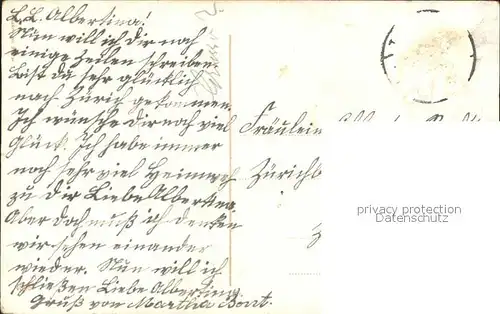 L. L. Albertina!
Nun will ich dir noch
einige Zeilen schreiben.
bist du sehr glücklich
nach Zürich gekommen.
Ich wünsche dir noch viel
Glück. Ich habe immer
noch sehr viel Heimweh
zu dir Liebe Albertina
Aber doch muß ich denken
wir sehen einander
wieder. Nun will ich
schließen Liebe Albertina
Gruß von Martha
Fräulein
Zürich
privacy protection
Datenschutz